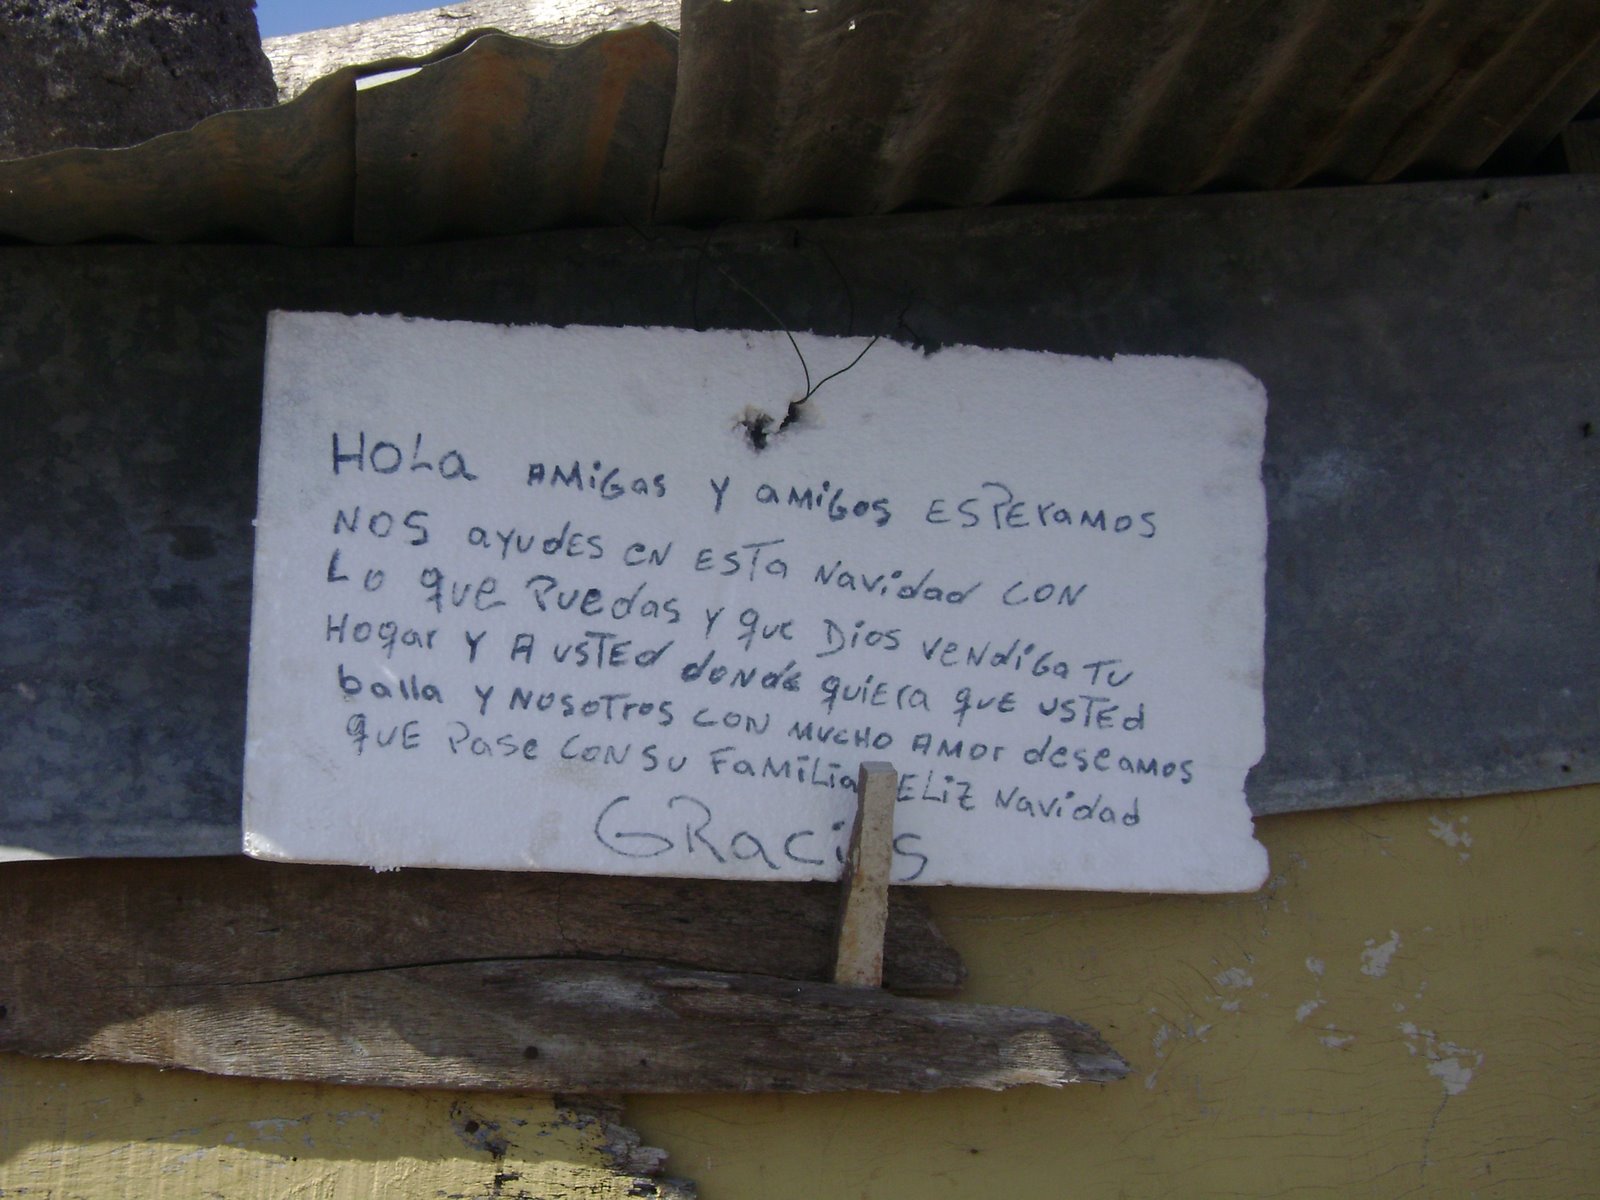 HOLa AMiGas Y aMiGos ESPEraMos
NOS ayudES eN ESTa Navidad CON
Lo que Puedas y que Dios veNdiGa TU
Hogar Y A USTEd doNde quiera que USTEd
balla Y NOSOTros CON MUCHO AMOr deseaMos
quE Pase CON SU FaMiLia ELiZ Navidad